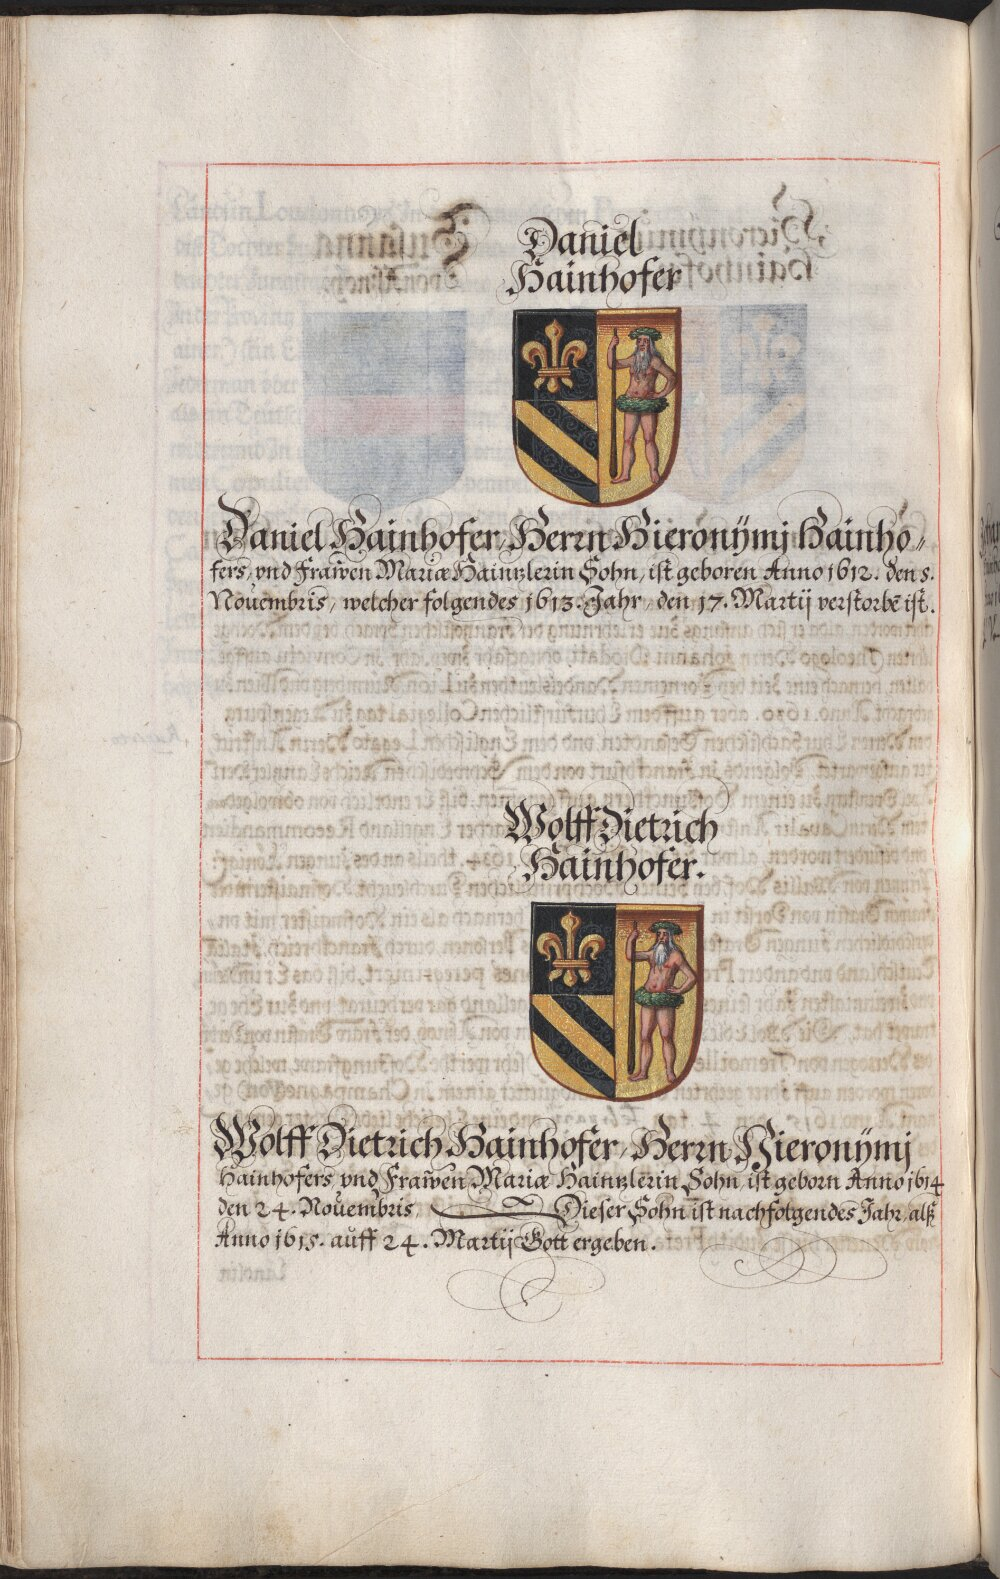 Daniel
Hainhofer
Daniel Hainhofer, Herrn Hieronÿmj Hainho„
fers, vnd Frawen Mariæ Haintzlerin Sohn, ist geboren Anno 1612. den 5.
Nouembris, welcher folgendes 1613. Jahr, den 17. Martij verstorbē ist.
Wolff Dietrich
Hainhofer.
Wolff Dietrich Hainhofer, Herrn Hieronÿmj
Hainhofers, vnd Frawen Mariæ Haintzlerin Sohn, ist geborn Anno 1614
den 24. Nouembris Dieser Sohn ist nachfolgendes Jahr, alß
Anno 1615. auff 24. Martij Gott ergeben.